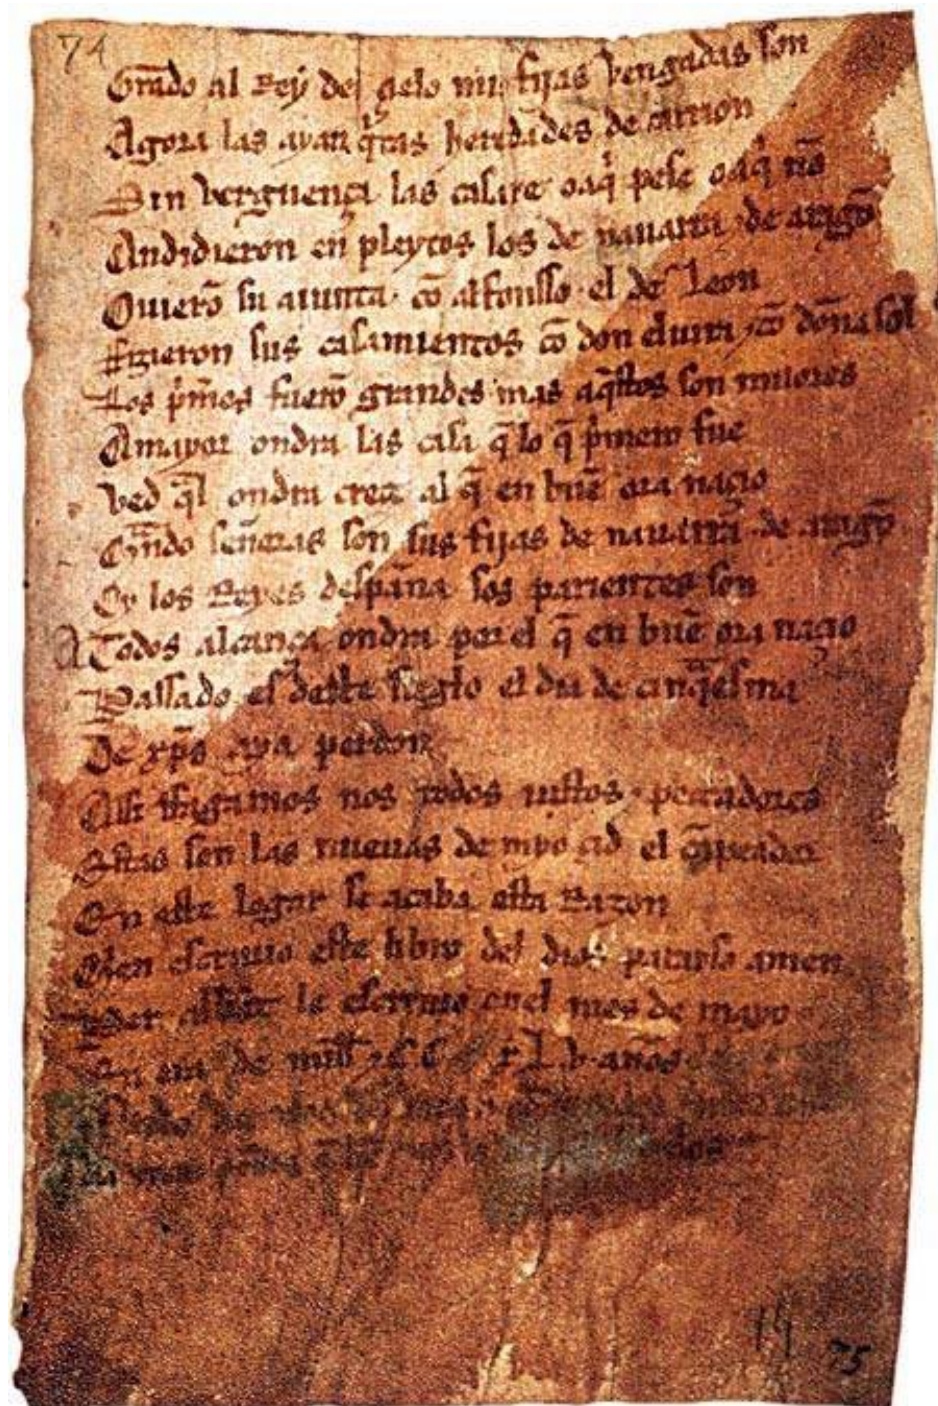 74
Grado al Rey del çielo mis fijas vengadas son
Agora las ayan q̃tas heredades de carrion
Sin verguença las casare o a q̃ pese o a q̃ nõ
Andidieron en pleytos los de nauarra ⁊ de aragõ
Ouierõ su aiunta cõ alfonsso el de Leon
ffizieron sus casamientos cõ don eluira ⁊ cõ doña sol
Los p̃meros fuerõ grandes mas aq̃stos son miiores
A mayor ondra las casa q̃ lo q̃ p̃mero fue
Ved q̃l ondra creçe al q̃ en buẽ ora naçio
Quãdo señoras son sus fijas de nauarra ⁊ de aragõ
Oy los Reyes despaña sos parientes son
A Todos alcança ondra por el q̃ en buẽ ora naçio
Passado es deste sieglo el dia de cinq̃esma
De xp̃s aya perdon
Assi ffagamos nos todos iustos ⁊ peccadores
Estas son las nueuas de myo çid el cãpeador
En este logar se acaba esta Razon
Quien escriuio este libro del dios parayso amen
Per abbat le escriuio enel mes de mayo
En era de mill ⁊ C.C xL.v. años
75